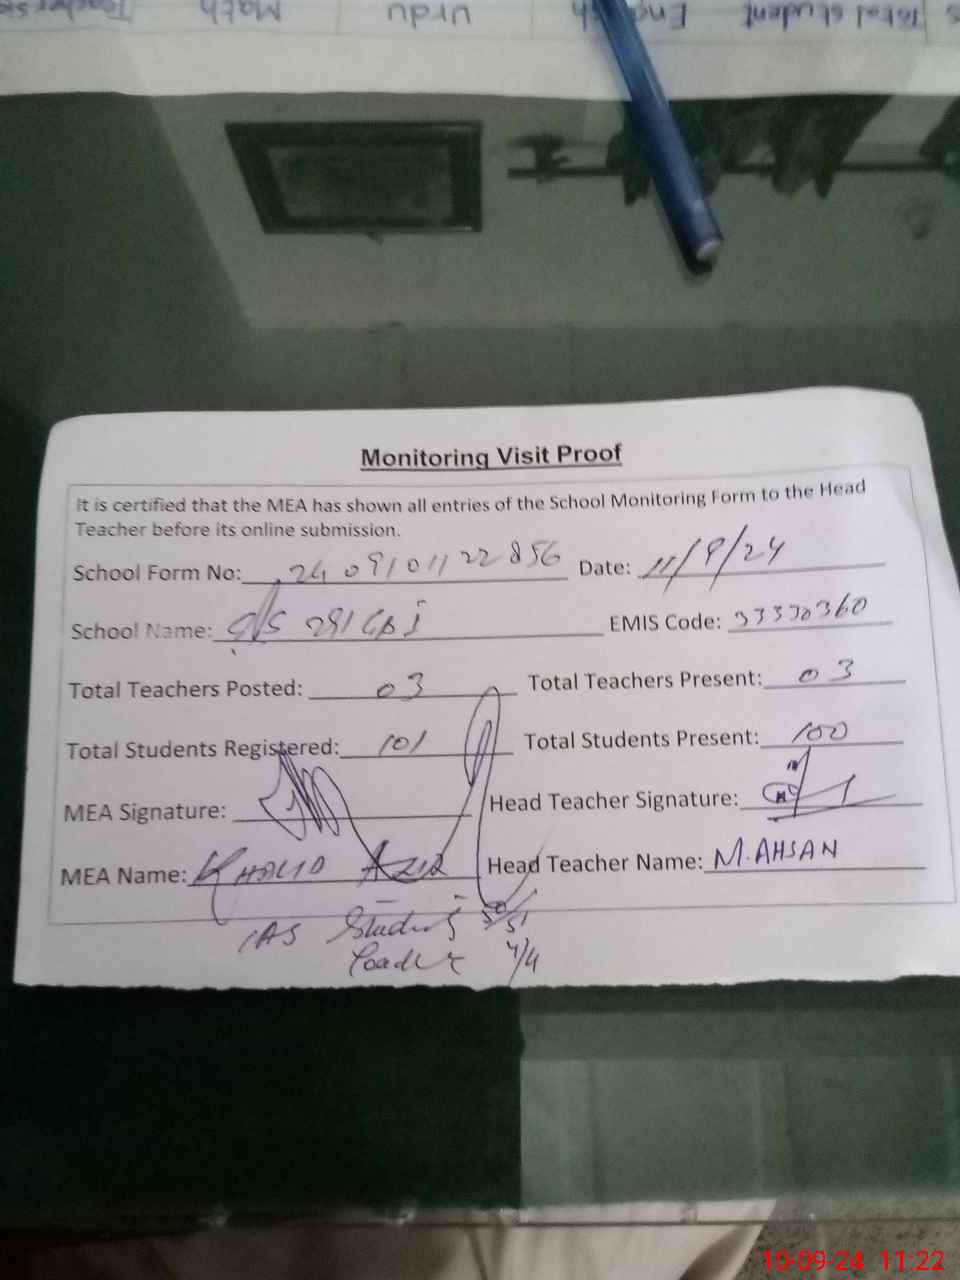 Total student English Urdu Math
Monitoring Visit Proof
It is certified that the MEA has shown all entries of the School Monitoring Form to the Head
Teacher before its online submission.
School Form No: 24 09101122856 Date: 11/9/24
School Name: 291 EMIS Code: 33330360
Total Teachers Posted: 03 Total Teachers Present: 03
Total Students Registered: 101 Total Students Present: 100
MEA Signature: Head Teacher Signature:
MEA Name: KHALID AZIZ Head Teacher Name: M. AHSAN
50/51
4/4
10-09-24 11:22